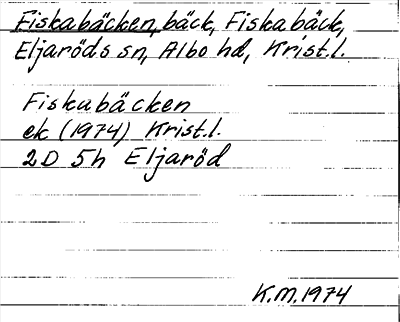 Fiskabäcken, bäck, Fiskabäck,
Eljaröds sn, Albo hd, Krist.l.
Fiskabäcken
ek (1974) Krist.l.
2D 5h Eljaröd
K.M. 1974